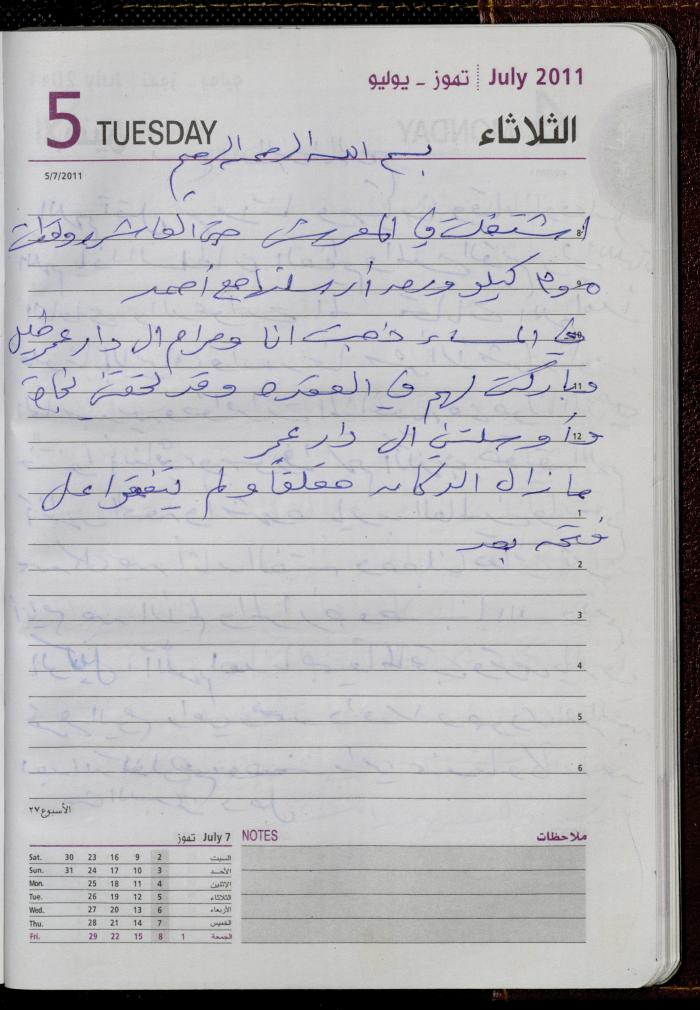 July 2011 تموز - يوليو
5 TUESDAY الثلاثاء
بسم الله الرحمن الرحيم
5/7/2011
اشتغلت في المعرش حتى العاشرة وقطفت
8
كيلو ورق أرسلتها مع أحمد
9
في المساء ذهبت انا ومرام الى دار عمر خليل
10
وباركت لهم في العقده وقد لحقتني نجاح
11
وأوصلتني الى دار عمر
12
ما زال الدكان مغلقاً ولم يتفقوا على
1
فتحه بعد
2
3
4
5
6
الأسبوع ٢٧
July 7 تموز
NOTES ملاحظات
Sat. 30 23 16 9 2 السبت
Sun. 31 24 17 10 3 الأحد
Mon. 25 18 11 4 الإثنين
Tue. 26 19 12 5 الثلاثاء
Wed. 27 20 13 6 الأربعاء
Thu. 28 21 14 7 الخميس
Fri. 29 22 15 8 1 الجمعة